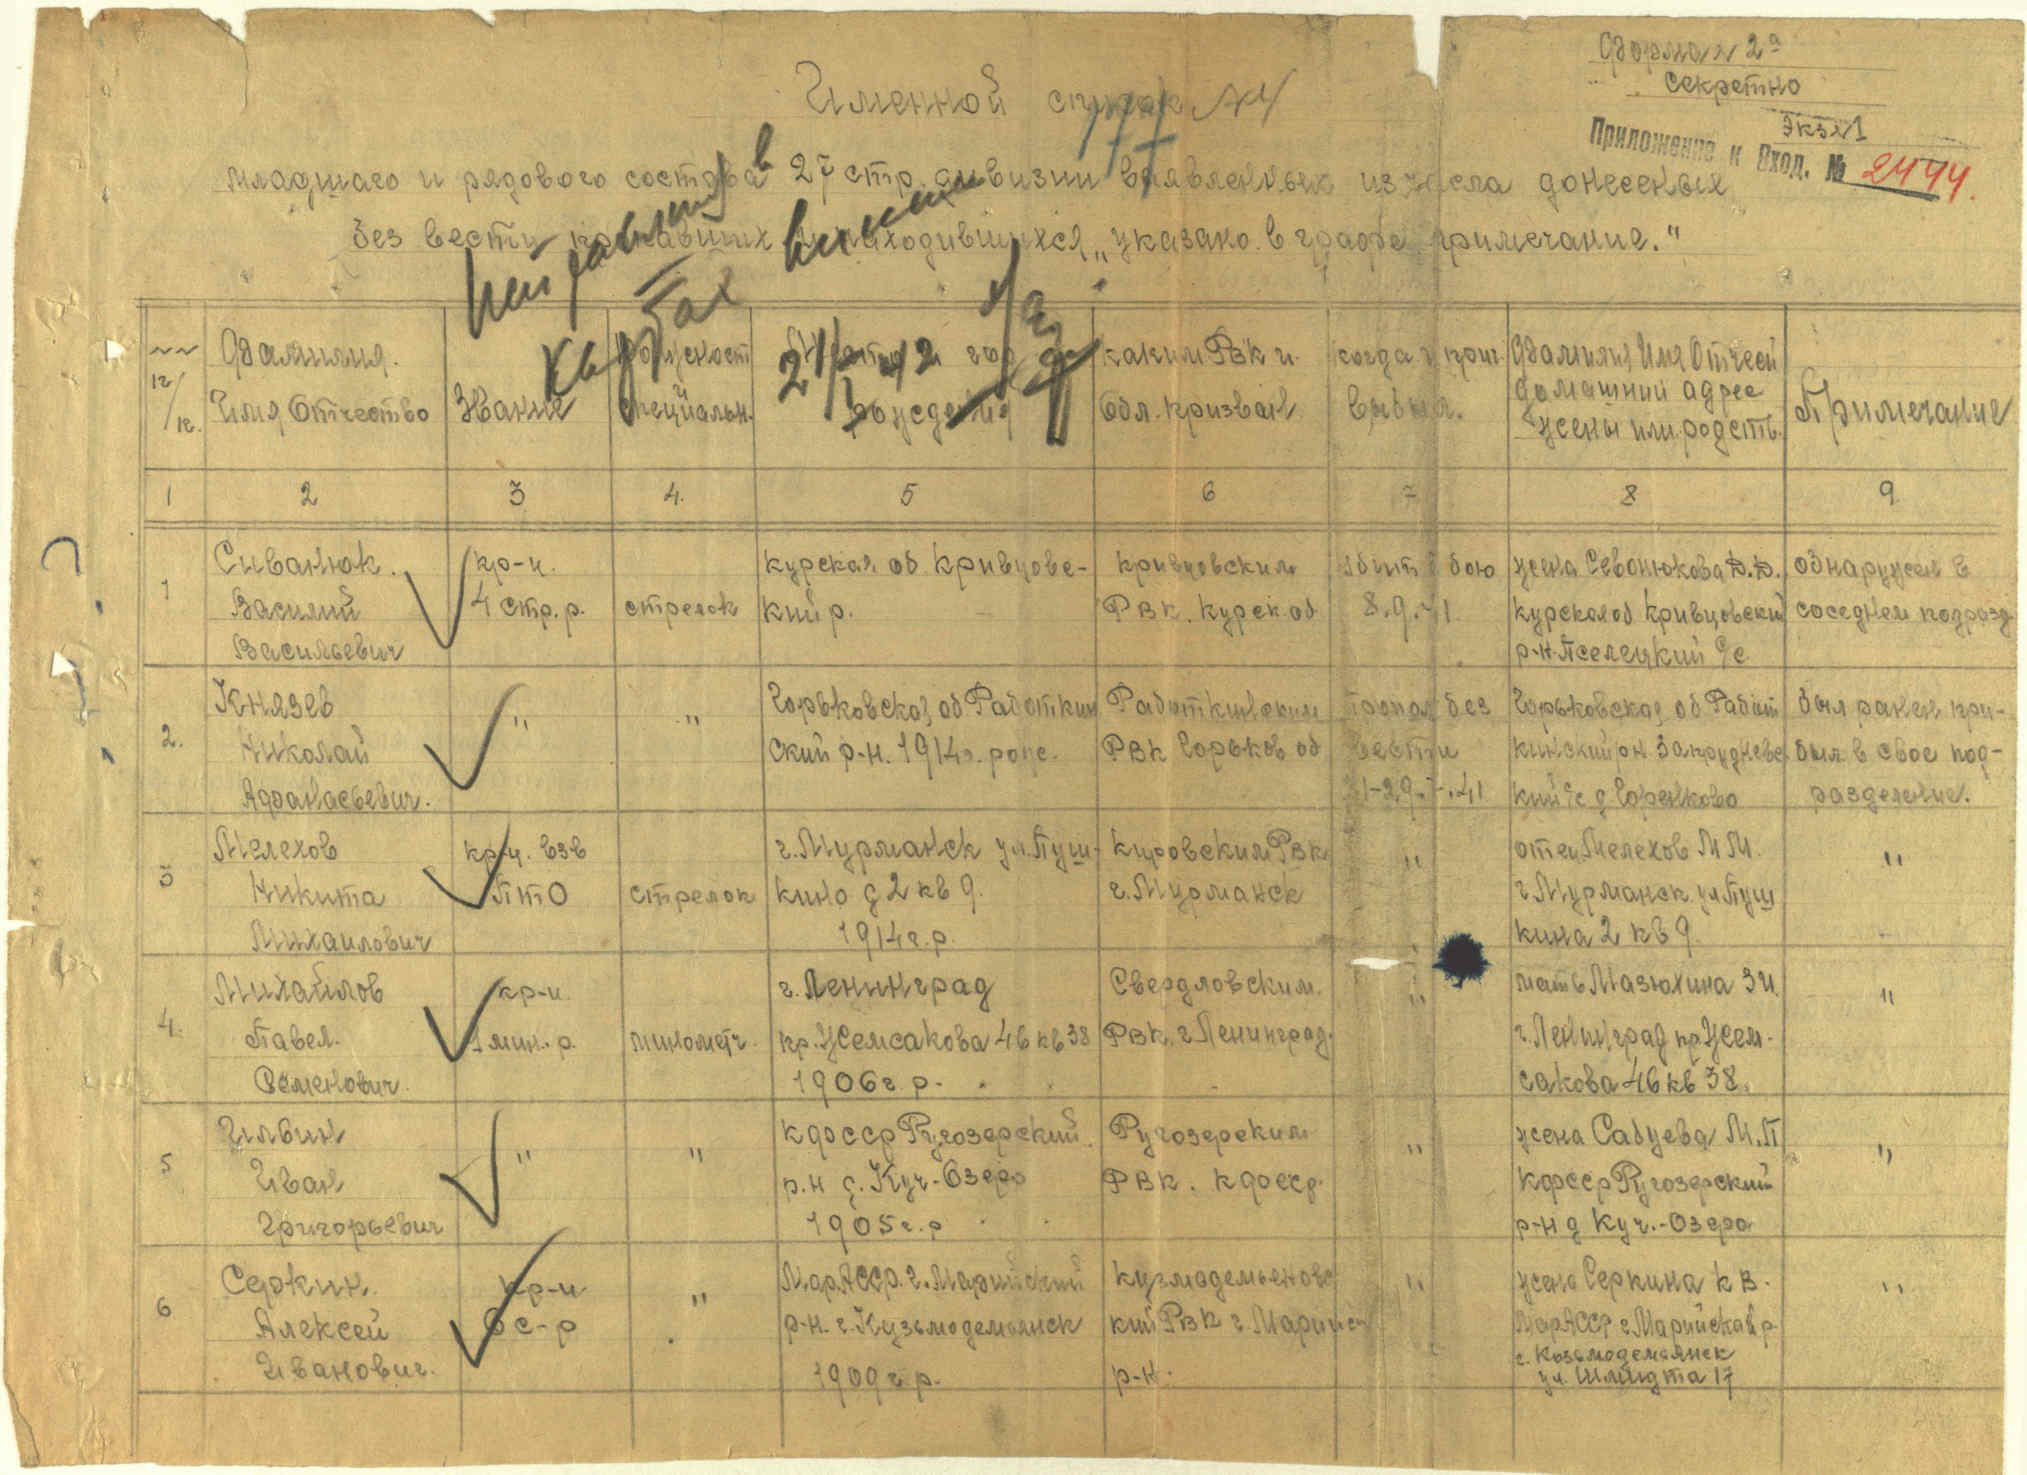 Форма № 2а
Секретно
Экз №1
Приложение к Вход. № 2494.
Именной список №4
младшаго и рядового состава 27 стр. дивизии выявленных из числа донесеных
без вести пропавших и находившихся „указано в графе примечание."
Исправлены в
книгах
картах
21/I 42
№№ п/п.
Фамилия.
Имя Отчество
Звание
Должност
специальн.
Место и год
рождения
каким РВК и
Обл. призван
когда и прич.
выбыл.
Фамилия Имя Отчест
домашний адрес
жены или родств.
Примечание
1 2 3 4. 5 6 7 8 9.
1
Сиванюк.
Василий
Васильевич
кр-ц.
4 стр. р.
стрелок
курская об. Кривцовс-
кий р.
Кривцовским
РВК. Курск об
убит в бою
8.9.41
жена Севонюкова Д.Д.
курская об Кривцовский
р-н Пселецкий с/с
обнаружен в
соседнем подразд
2.
Князев
Николай
Афанасьевич.
"
"
Горьковская об Работкин
ский р-н. 1914г. рож.
Работкинским
РВК Горьков об
пропал без
вести
Горьковская об Работ
кинский рн Запрудневс
кий с/с д Горенково
был ранен при-
был в свое под-
разделение.
3
Мелехов
Никита
Михаилович
кр-ц. взв
ПТО
стрелок
г. Мурманск ул. Пуш-
кино д 2 кв 9.
1914г.р.
Кировским РВК
г. Мурманск
"
отец Мелехов М М.
г. Мурманск ул Пуш
кина 2 кв 9.
"
4.
Михайлов
Павел.
Семенович.
кр-ц.
1 мин. р.
минометч.
г. Ленинград
пр. Жемсакова 46 кв 38
1906г. р.
Свердловским.
РВК. г Ленинград.
"
мать Мазюхина З И.
г. Ленинград пр. Жем-
сакова 46 кв 38.
"
5
Ильин
Иван
Григорьевич
"
"
кфсср Ругозерский
р-н д. Куч-Озеро
1905г. р
Ругозерским
РВК. кфсср.
"
жена Сабуева М.П
кфсср Ругозерский
р-н д Куч.-Озеро
"
6
Серкин.
Алексей
Иванович.
кр-ц
6 с-р
"
Мар.АССР. г. Марийский
р-н. г. Кузьмодемьянск
1909г. р.
Кузмодемьеновс
кий РВК г. Марийск
р-н.
"
жена Серкина К В.
МарАССР г Марийский р
г. Козьмодемьянск
ул. Шмидта 17
"